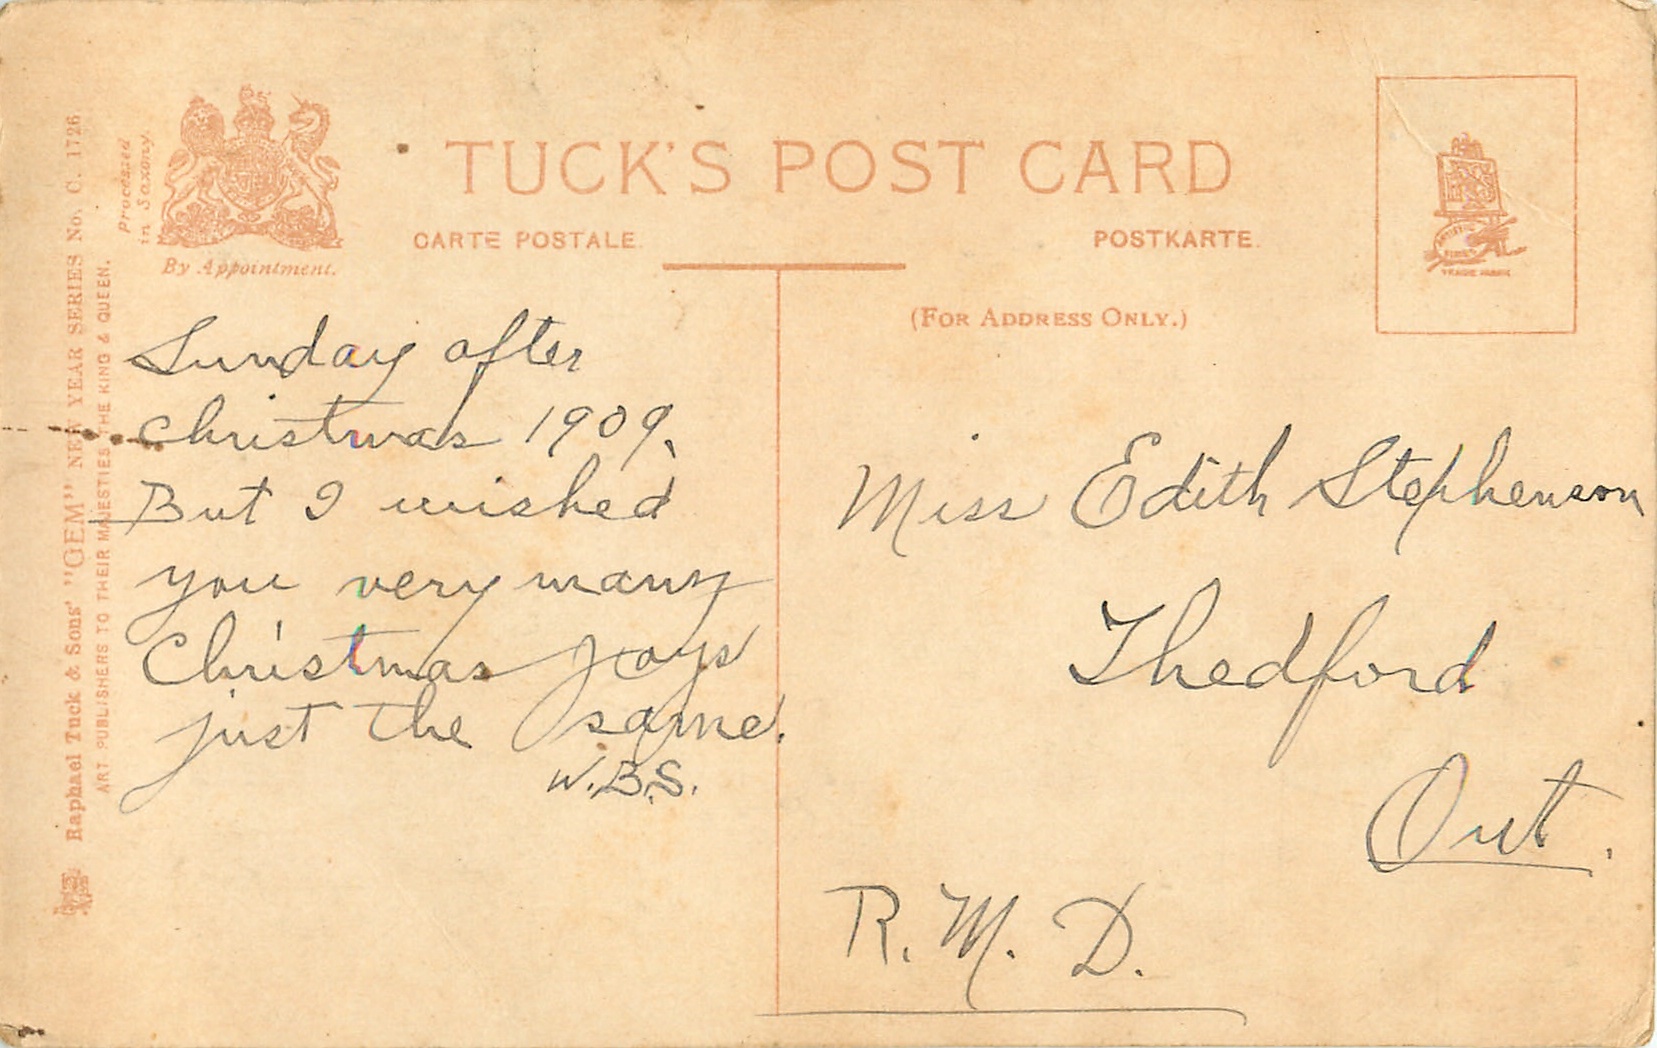 TUCK'S POST CARD
CARTE POSTALE.
POSTKARTE.
(FOR ADDRESS ONLY.)
Processed
in Saxony.
By Appointment.
TRADE MARK
Raphael Tuck & Sons' "GEM" NEW YEAR SERIES No. C. 1726
ART PUBLISHERS TO THEIR MAJESTIES THE KING & QUEEN.
Sunday after
Christmas 1909.
But I wished
you very many
Christmas joys
just the same.
W.B.S.
Miss Edith Stephenson
Thedford
Ont.
R. M. D.